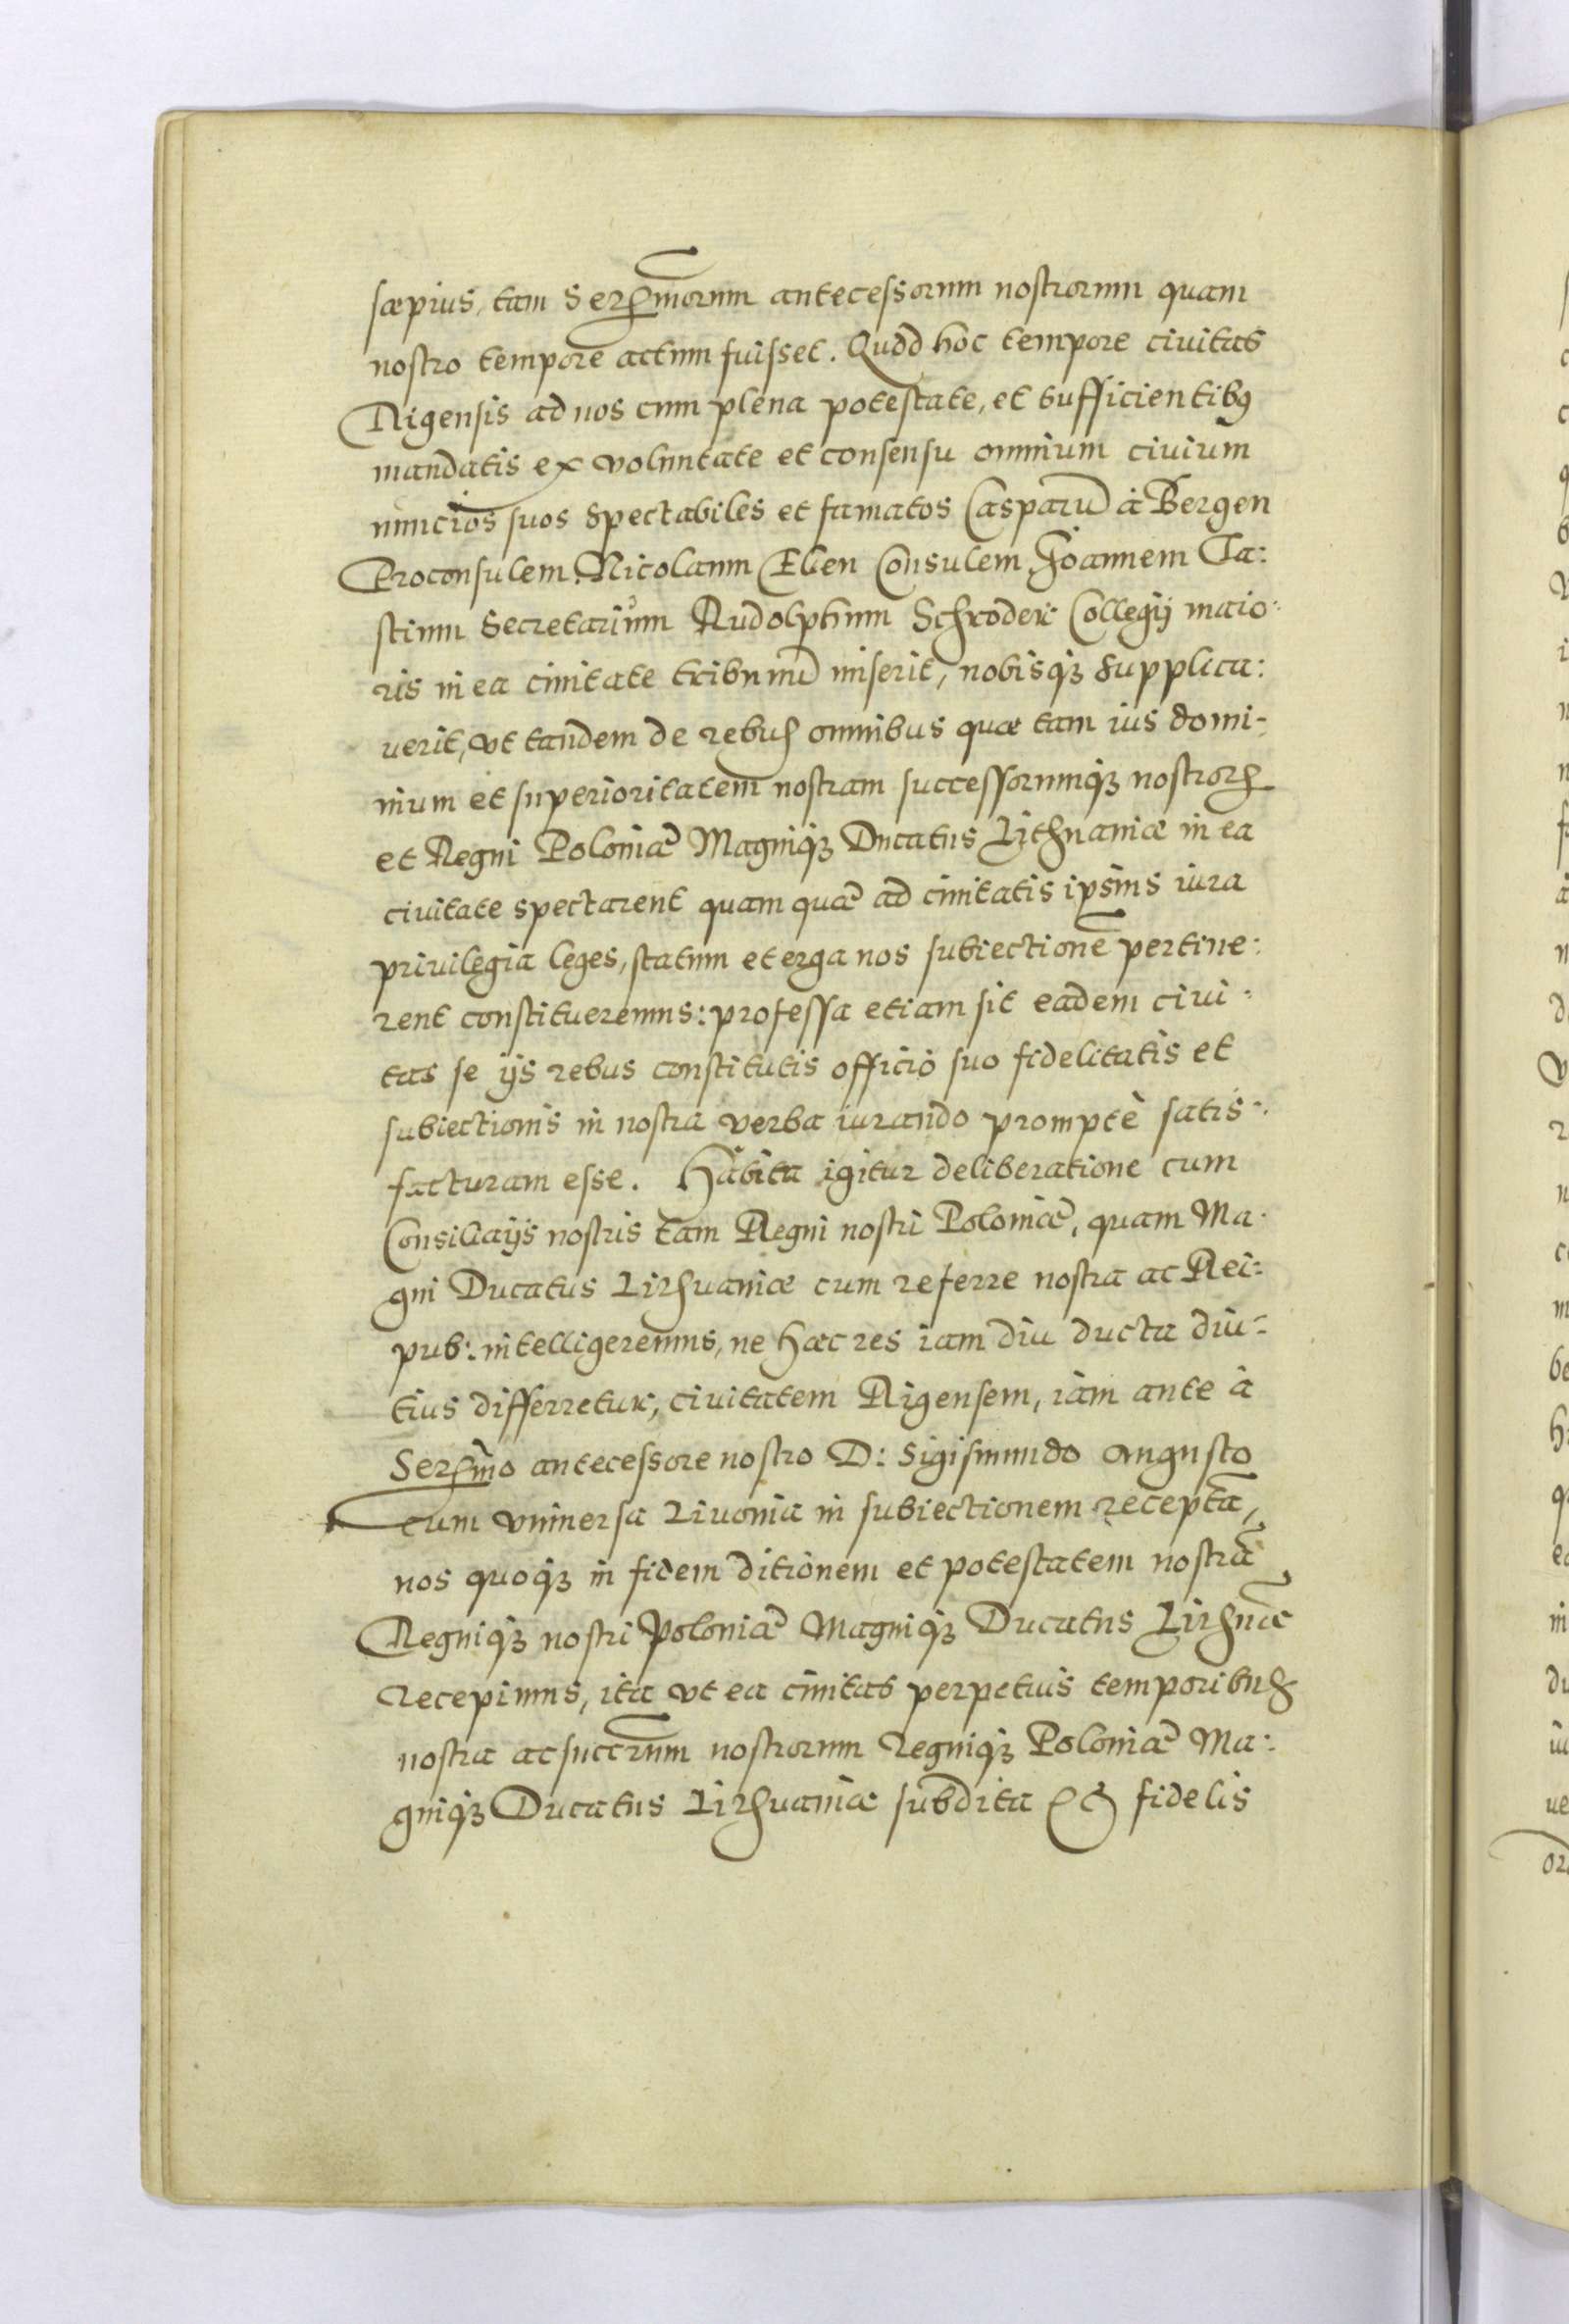 sæpius, tam Sermorum antecessorum nostrorum quam
nostro tempore actum fuisset. Quòd hoc tempore ciuitas
Rigensis ad nos cum plena potestate, et sufficientibꝫ
mandatis ex voluntate et consensu omnium ciuium
nuncios suos Spectabiles et famatos Casparū à Bergen
Proconsulem, Nicolaum Eken Consulem, Joannem Ta:
stium Secretarium Rudolphum Schroder Collegij maio:
ris in ea ciuitate tribunū miserit, nobisqꝫ supplica:
uerit, vt tandem de rebus omnibus quæ tam ius domi-
nium et superioritatem nostram successorumqꝫ nostroꝝ
et Regni Poloniæ Magniqꝫ Ducatus Lithuaniæ in ea
ciuitate spectarent quam quæ ad ciuitatis ipsius iura
priuilegia leges, statum et erga nos subiectionē pertine:
rent constitueremus: professa etiam sit eadem ciui:
tas se ijs rebus constitutis officio suo fidelitatis et
subiectionis in nostra verba iurando promptè satis:
facturam esse. Habita igitur deliberatione cum
Consiliarijs nostris tam Regni nostri Poloniæ, quam Ma:
gni Ducatus Lithuaniæ cum referre nostra ac Rei:
pub: intelligeremus, ne hæc res iam diu ducta diu:
tius differretur, ciuitatem Rigensem, iam ante à
Sermo antecessore nostro D: Sigismundo Augusto
cum vniuersa Liuonia in subiectionem recepta,
nos quoqꝫ in fidem ditionem et potestatem nostrā
Regniqꝫ nostri Poloniæ Magniqꝫ Ducatus Lithuæ
recepimus, ita vt ea ciuitas perpetuis temporibus
nostra ac succrum nostrorum Regniqꝫ Poloniæ Ma:
gniqꝫ Ducatus Lithuaniæ subdita et fidelis